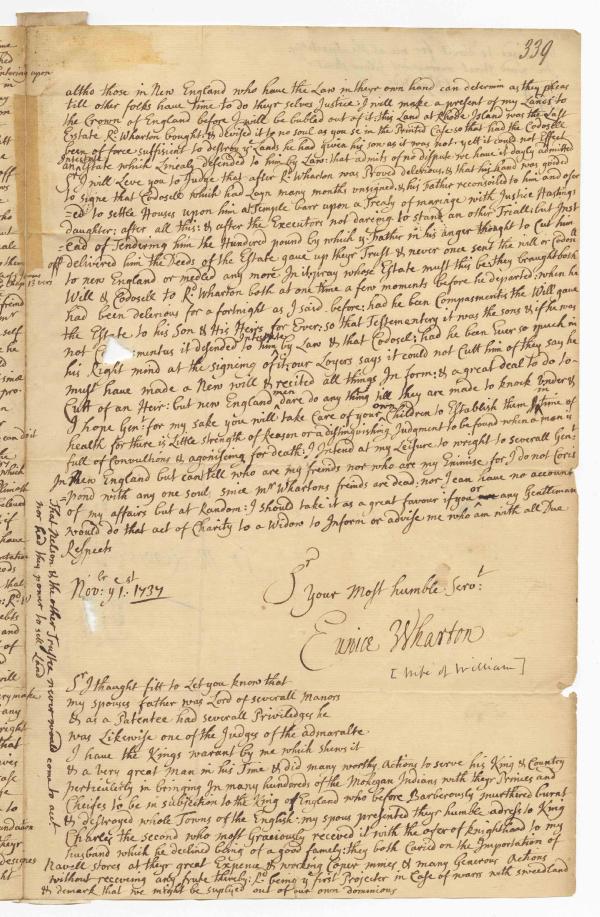 339
altho those in New England who have the Law in theyr own hand can determin as they pleas
till other folks have time to do theyr selves Justice: I will make a present of my Lands to
the Crown of England before I will be bubled out of it: this Land at Rhode Island was the Last
Estate Rd. Wharton bought: & devised it to no soul as you se in the Printed Case so that had the Codosell
been of force sufficient to destroy ye Lands he had given his son as it was not: yett it could not Effect
an Estate which Linealy defended to him by Law: that admits of no dispute we have it dayly admitted
Intestate
I will Leve you to Judge that after Rd. Wharton was Proved delerious, & that his hand was guided
to signe that Codosell which had Layn many months unsigned, & his Father reconsoild to him and ofer
=ed to settle Houses upon him at Temple barr upon a Treaty of mariage with Justice Hastings
daughter: after all this: & after the Executors not dareing to stand an other Triall: but Inst
=ead of Tendring him the Hundred pound by which ye Father in his anger thought to Cut him
off delivered him the Deeds of the Estate gave up theyr Trust & never one sent the will or Codosell
to new England or medled any more In it: pray whose Estate must this be: they brought both
Will & Codosell to Rd. Wharton both at one time a few moments before he departed; when he
had been delerious for a fortnight as I said before: had he ben Compasments the Will gave
the Estate to his Son & His Heirs for Ever: so that Testementery it was the sons & if he was
not mentus it defended to him by Law & that Codosel: had he ben Ever so much in
Intestate
his Right mind at the signing of it: our Loyers says it could not Cutt him of they say he
must have made a New will & recited all things In form: & a great deal to do to-
Cutt of an Heir: but new England men dare do any thing till they are made to knock under &
I hope Gent: for my sake you will take Care of your own Children to Establish them In time of
health for there is Little strength of Reason or a distinguishing Judgment to be found when a man is
full of Convultions & agoniseing for death: I Intend at my Leisure to wright to severall Gent
In New England but can tell who are my freinds nor who are my Enimise for I do not Corris
=pond with any one soul, since mr Whartons freinds are dead: nor I can have no account
of my affairs but at Random: I should take it as a great favour if you any Gentleman
would do that act of Charity to a Widow to Inform or advise me who am with all Due
Respects
Novbr: ye 1st. 1737
Sr
your Most humble Servt
Eunice Wharton
[Wife of William]
That Nelson & the other Trustee never would come to act
nor had they power to sell Land
Sr I thought fitt to Let you know that
my spouses father was Lord of severall Manors
& as a Patentee had severall Priviledges he
was Likewise one of the Judges of the admaralte
I have the Kings warant by me which shews it
& a very great Man in his Time & did many worthy Actions to serve his King & Country
perticulerly in bringing In many hundreds of the Mohegan Indians with theyr Princes and
Cheifes to be in subjection to the King of England who before Barberously murthered burnt
& destroyed whole Towns of the English: my spous presented theyr humble adress to King
Charles the second who most Graciously received it with the ofer of knighthood to my
husband which he declined being of a good family; they both Caried on the Importation of
Navell stores at theyr great Expence & working Coper mines & many Generous Actions
without receiveing any frute thereby: Rd being ye first Projecter in Case of warrs with sweedland
& demark that we might be suplyed out of our own dominions